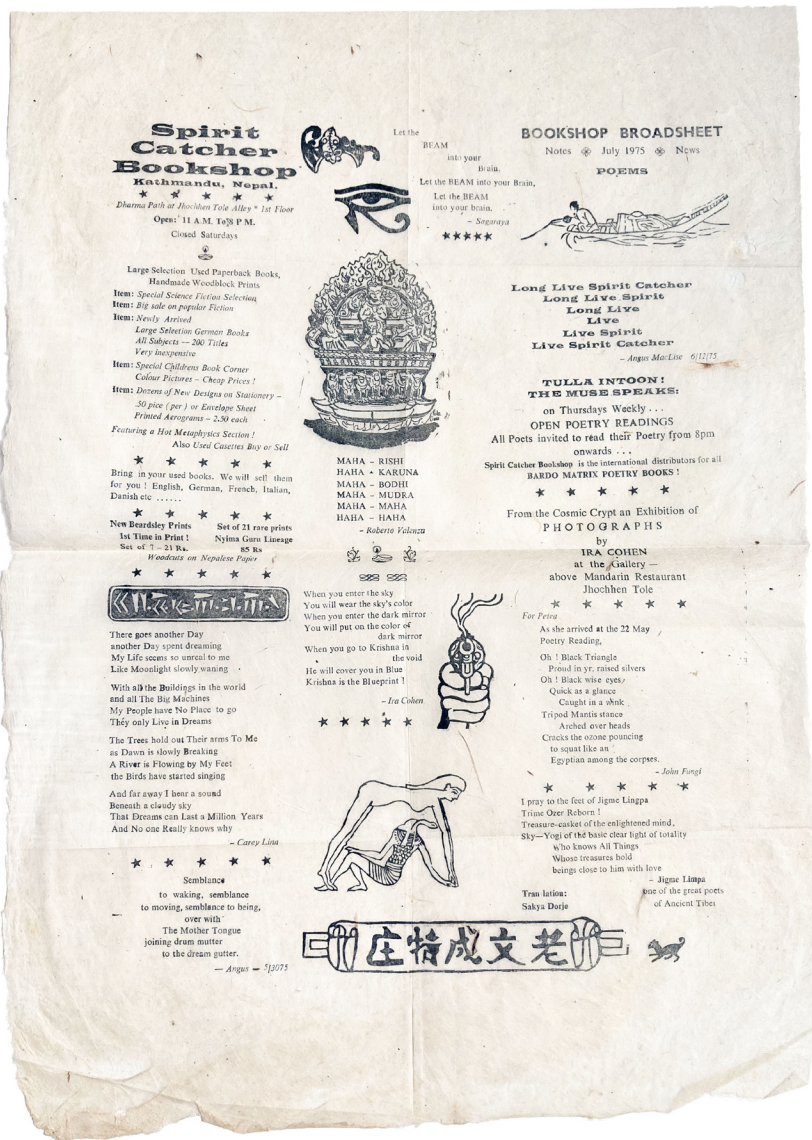 Spirit
Catcher
Bookshop
Kathmandu, Nepal.
Dharma Path at Jhochhen Tole Alley * 1st Floor
Open: 11 A.M. To 8 P.M.
Closed Saturdays
Large Selection Used Paperback Books,
Handmade Woodblock Prints
Item: Special Science Fiction Selection
Item: Big sale on popular Fiction
Item: Newly Arrived
Large Selection German Books
All Subjects — 200 Titles
Very inexpensive
Item: Special Childrens Book Corner
Colour Pictures – Cheap Prices !
Item: Dozens of New Designs on Stationery –
.50 pice ( per ) or Envelope Sheet
Printed Aerograms – 2.50 each
Featuring a Hot Metaphysics Section !
Also Used Casettes Buy or Sell
★ ★ ★ ★ ★
Bring in your used books. We will sell them
for you ! English, German, French, Italian,
Danish etc ......
★ ★ ★ ★ ★
New Beardsley Prints
1st Time in Print !
Set of 7 – 21 Rs.
Set of 21 rare prints
Nyima Guru Lineage
85 Rs
Woodcuts on Nepalese Paper
★ ★ ★ ★ ★
There goes another Day
another Day spent dreaming
My Life seems so unreal to me
Like Moonlight slowly waning
With all the Buildings in the world
and all The Big Machines
My People have No Place to go
They only Live in Dreams
The Trees hold out Their arms To Me
as Dawn is slowly Breaking
A River is Flowing by My Feet
the Birds have started singing
And far away I hear a sound
Beneath a cloudy sky
That Dreams can Last a Million Years
And No one Really knows why
– Carey Linn
★ ★ ★ ★ ★
Semblance
to waking, semblance
to moving, semblance to being,
over with
The Mother Tongue
joining drum mutter
to the dream gutter.
— Angus — 5|3075
Let the
BEAM
into your
Brain.
Let the BEAM into your Brain,
Let the BEAM
into your brain.
– Sagaraya
★★★★★
MAHA – RISHI
HAHA + KARUNA
MAHA – BODHI
MAHA – MUDRA
MAHA – MAHA
HAHA – HAHA
– Roberto Valenza
When you enter the sky
You will wear the sky's color
When you enter the dark mirror
You will put on the color of
dark mirror
When you go to Krishna in
the void
He will cover you in Blue
Krishna is the Blueprint !
– Ira Cohen
★ ★ ★ ★ ★
老文成特庄
BOOKSHOP BROADSHEET
Notes ❉ July 1975 ❉ News
POEMS
Long Live Spirit Catcher
Long Live Spirit
Long Live
Live
Live Spirit
Live Spirit Catcher
– Angus MacLise 6|12|75
TULLA INTOON!
THE MUSE SPEAKS:
on Thursdays Weekly . . .
OPEN POETRY READINGS
All Poets invited to read their Poetry from 8pm
onwards . . .
Spirit Catcher Bookshop is the international distributors for all
BARDO MATRIX POETRY BOOKS !
★ ★ ★ ★ ★
From the Cosmic Crypt an Exhibition of
PHOTOGRAPHS
by
IRA COHEN
at the Gallery —
above Mandarin Restaurant
Jhochhen Tole
★ ★ ★ ★ ★
For Petra
As she arrived at the 22 May
Poetry Reading,
Oh ! Black Triangle
Proud in yr. raised silvers
Oh ! Black wise eyes,
Quick as a glance
Caught in a wink
Tripod Mantis stance
Arched over heads
Cracks the ozone pouncing
to squat like an
Egyptian among the corpses.
– John Fungi
★ ★ ★ ★ ★
I pray to the feet of Jigme Lingpa
Trime Ozer Reborn !
Treasure-casket of the enlightened mind,
Sky—Yogi of the basic clear light of totality
Who knows All Things
Whose treasures hold
beings close to him with love
– Jigme Limpa
one of the great poets
of Ancient Tibet
Tran lation:
Sakya Dorje